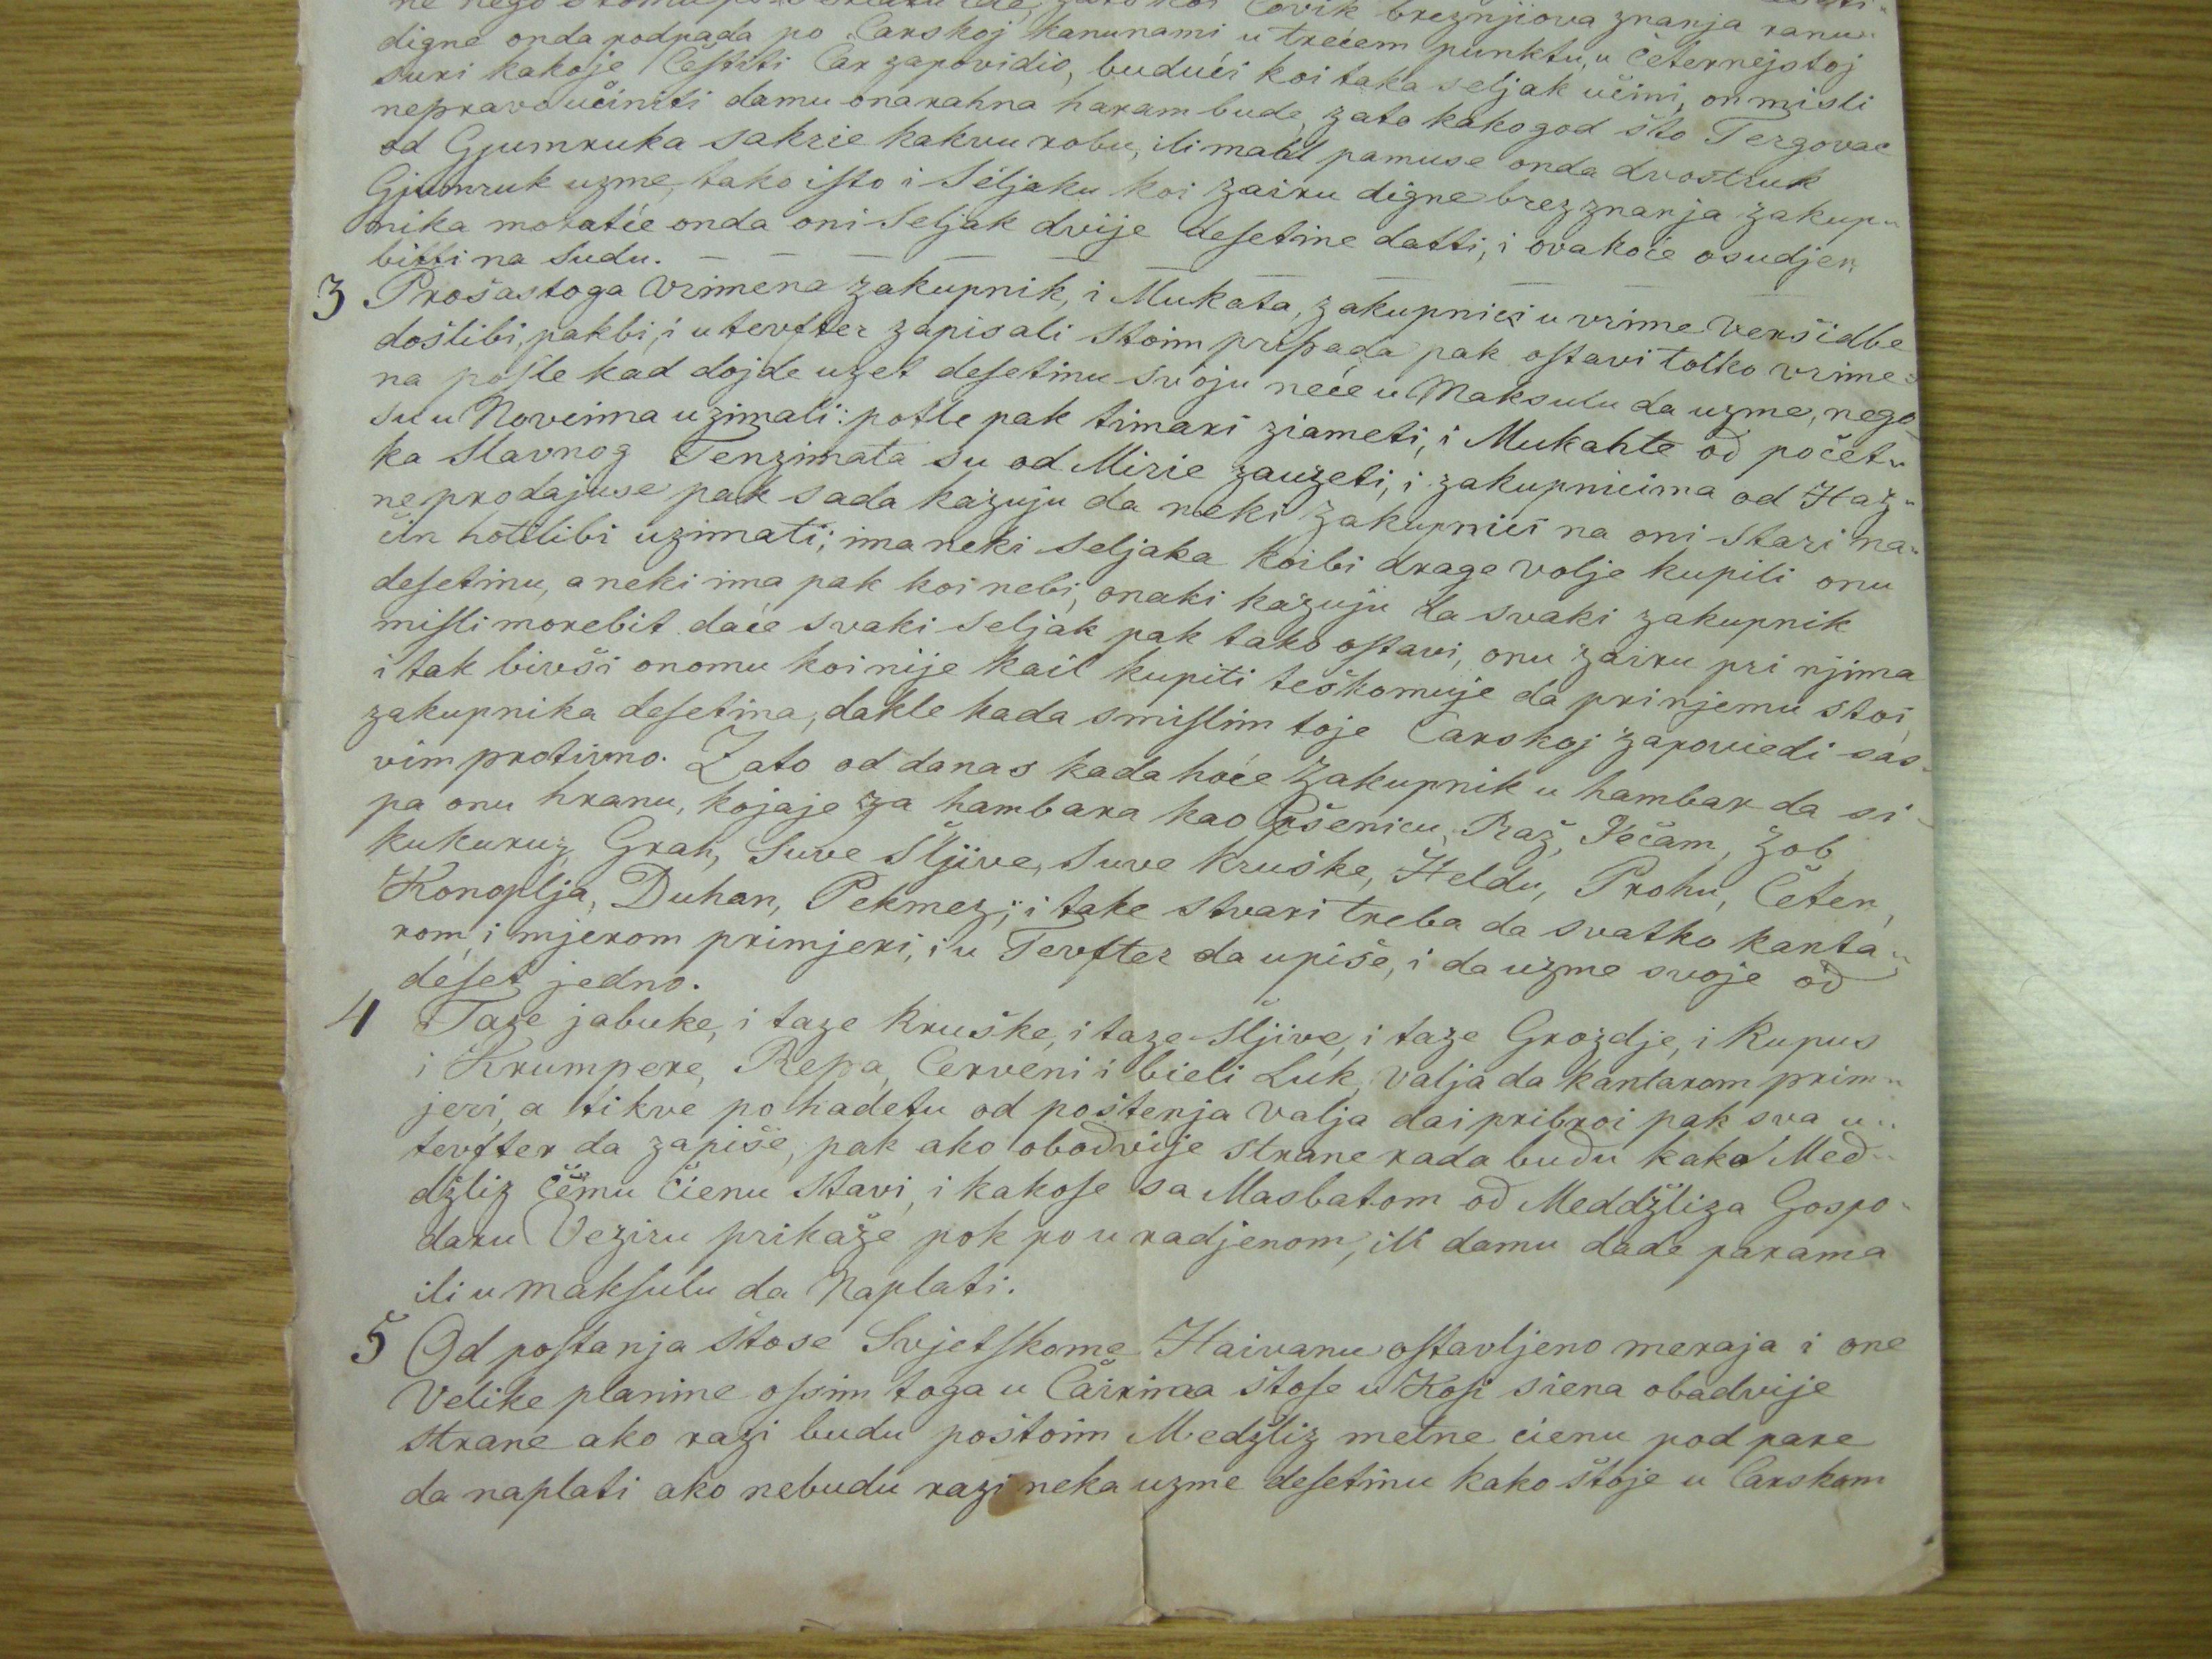 čovik breznjiova znanja ranu
digne onda podpada po Carskoj kanunami u trećem punktu, u četernejstoj
suri kakoje Čestiti Car zapovidio, budući koi taka seljak učini, on misli
nepravo učiniti damu ona rahna haram bude, zato kakogod što Tergovac
od Gjumruka sakrie kakvu robu, ili mahl pamuse onda dvostruk
Gjumruk uzme, tako isto i Seljaku koi zairu digne brez znanja zakup„
nika moratiće onda oni Seljak dvije desetine datti, i ovakoće osudjen
bitti na Sudu.
3 Prošastoga vrimena zakupnik, i Mukata, zakupnici u vrime veršidbe
došlibi, pakbi, i u tevfter zapisali štoim pripada pak ostavi tolko vrime„
na posle kad dojde uzet desetinu svoju neće u Maksulu da uzme, nego
su u Novcima uzimali: potle pak timari ziameti, i Mukahte od počet„
ka Slavnog Tenzimata su od Mirie zauzeti, i zakupnicima od Haz„
ne prodajuse pak sada kazuju da neki zakupnici na oni Stari na„
čin hotilibi uzimati; ima neki Seljaka koibi drage volje kupili onu
desetinu, a neki ima pak koi nebi, onaki kazuju da svaki zakupnik
misli morebit daće svaki Seljak pak tako ostavi, onu zairu pri njima
i tak bivši onomu koi nije kail kupiti teškomuje da pri njemu stoi
zakupnika desetina, dakle kada smislim toje Carskoj zapoviedi sas„
vim protivno. Zato od danas kada hoće Zakupnik u hambar da si„
pa onu hranu, kojaje za hambara kao Pšenicu, Raž, Ječam, Zob,
kukuruz, Grah, Suve Šljive, Suve kruške, Heldu, Prohu, Četen,
Konoplja, Duhan, Pekmez; i take stvari treba da svatko kanta„
rom, i mjerom primjeri, i u Tevfter da upiše, i da uzme svoje od
deset jedno.
4 Taze jabuke, i taze Kruške, i taze Šljive, i taze Grozdje, i Kupus
i Krumpere, Repa, Cerveni i bieli Luk, valja da kantarom prim„
jeri, a tikve po hadetu od poštenja valja dai pribroi pak sva u„
tevfter da zapiše, pak ako obodvije strane rada budu kako Med„
džliz čemu cienu stavi, i kakose sa Masbatom od Meddžliza Gospo„
daru Veziru prikaže pok po uradjenom, ili damu dade parama
ili u maksulu da Naplati.
5 Od postanja štose Svjetskome Haivanu ostavljeno meraja i one
Velike planine ossim toga u Čairima štose u Kosi siena obadvije
strane ako razi budu poštoim Medžliz metne cienu pod pare
da naplati ako nebudu razi neka uzme desetinu kako štoje u Carskom